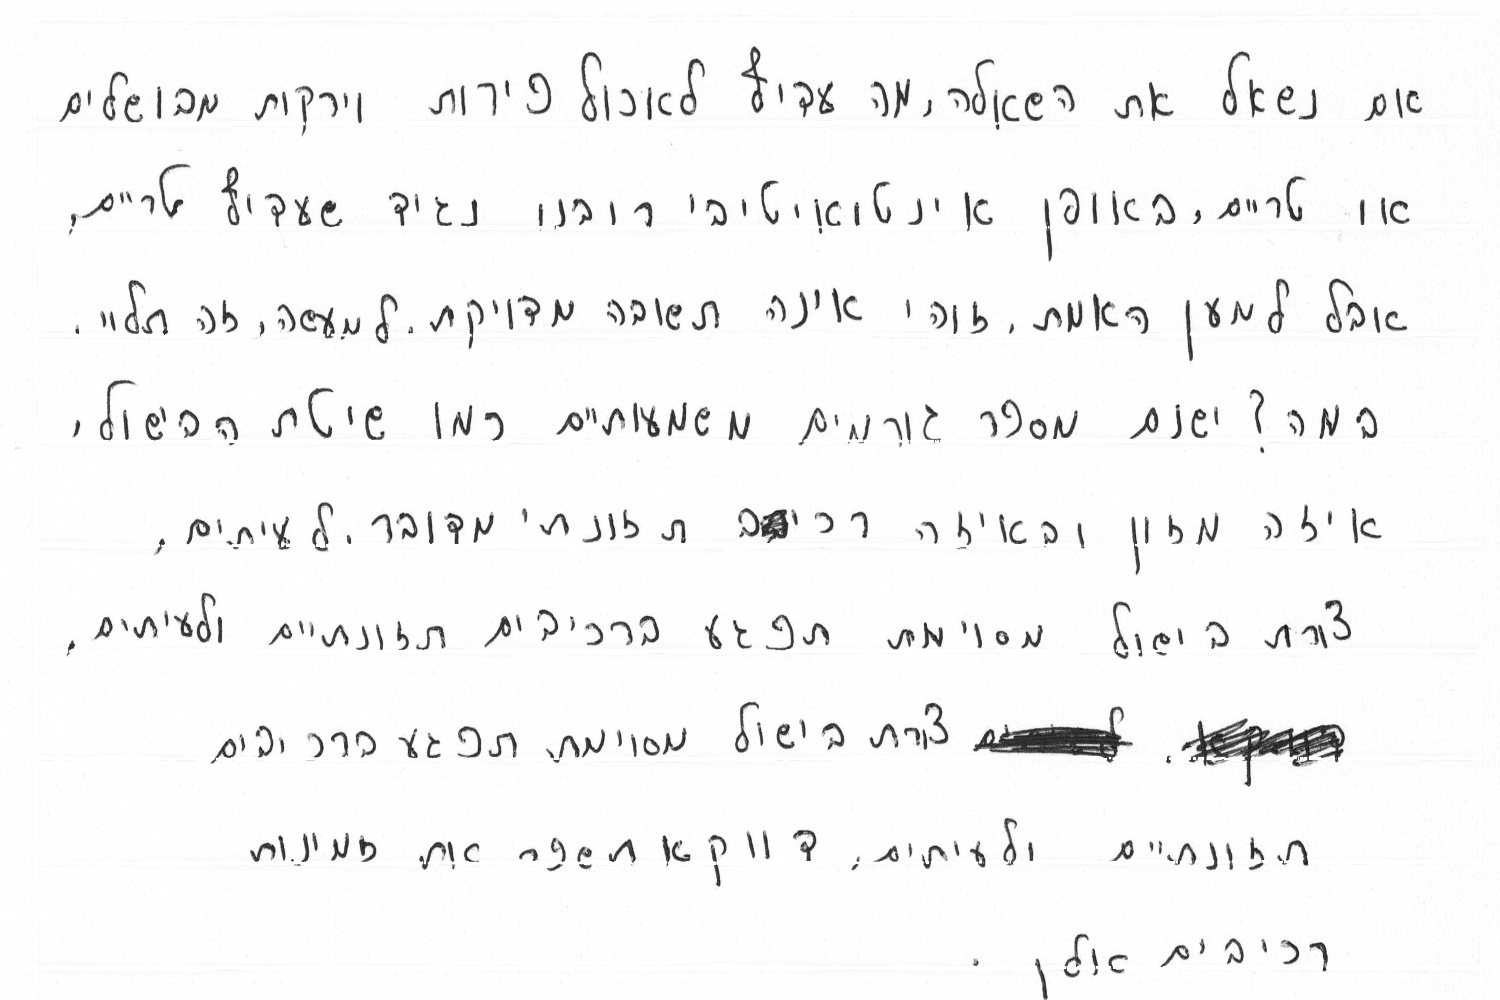 אם נשאל את השאלה, מה עדיף לאכול פירות וירקות מבושלים
או טריים, באופן אינטואיטיבי רובנו נגיד שעדיף טריים,
אבל למען האמת, זוהי אינה תשובה מדויקת. למעשה, זה תלוי.
במה? ישנם מספר גורמים משמעותיים כמו שיטת הבישול,
איזה מזון ובאיזה רכיב תזונתי מדובר. לעיתים,
צורת בישול מסוימת תפגע ברכיבים תזונתיים ולעיתים,
צורת בישול מסוימת תפגע ברכיבים
תזונתיים ולעיתים, דווקא תשפר את זמינות
רכיבים אולן.